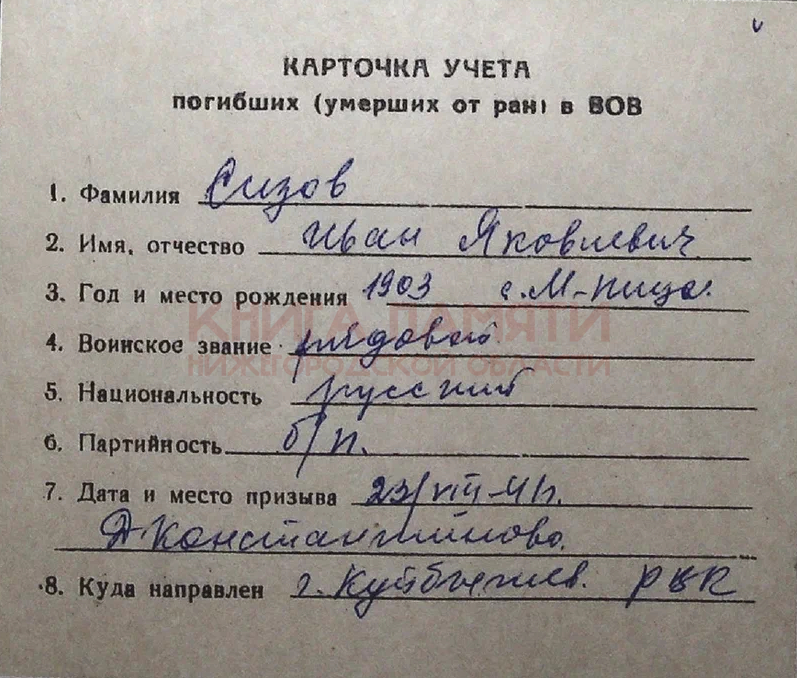 КАРТОЧКА УЧЕТА
погибших (умерших от ран) в ВОВ
1. Фамилия Сизов
2. Имя, отчество Иван Яковлевич
3. Год и место рождения 1903 с. М-пица.
КНИГА ПАМЯТИ
4. Воинское звание рядовой
НИЖЕГОРОДСКОЙ ОБЛАСТИ
5. Национальность русский
6. Партийность б/п.
7. Дата и место призыва 23/VIII-41г.
Д. Константиново.
8. Куда направлен г. Куйбышев. РВК